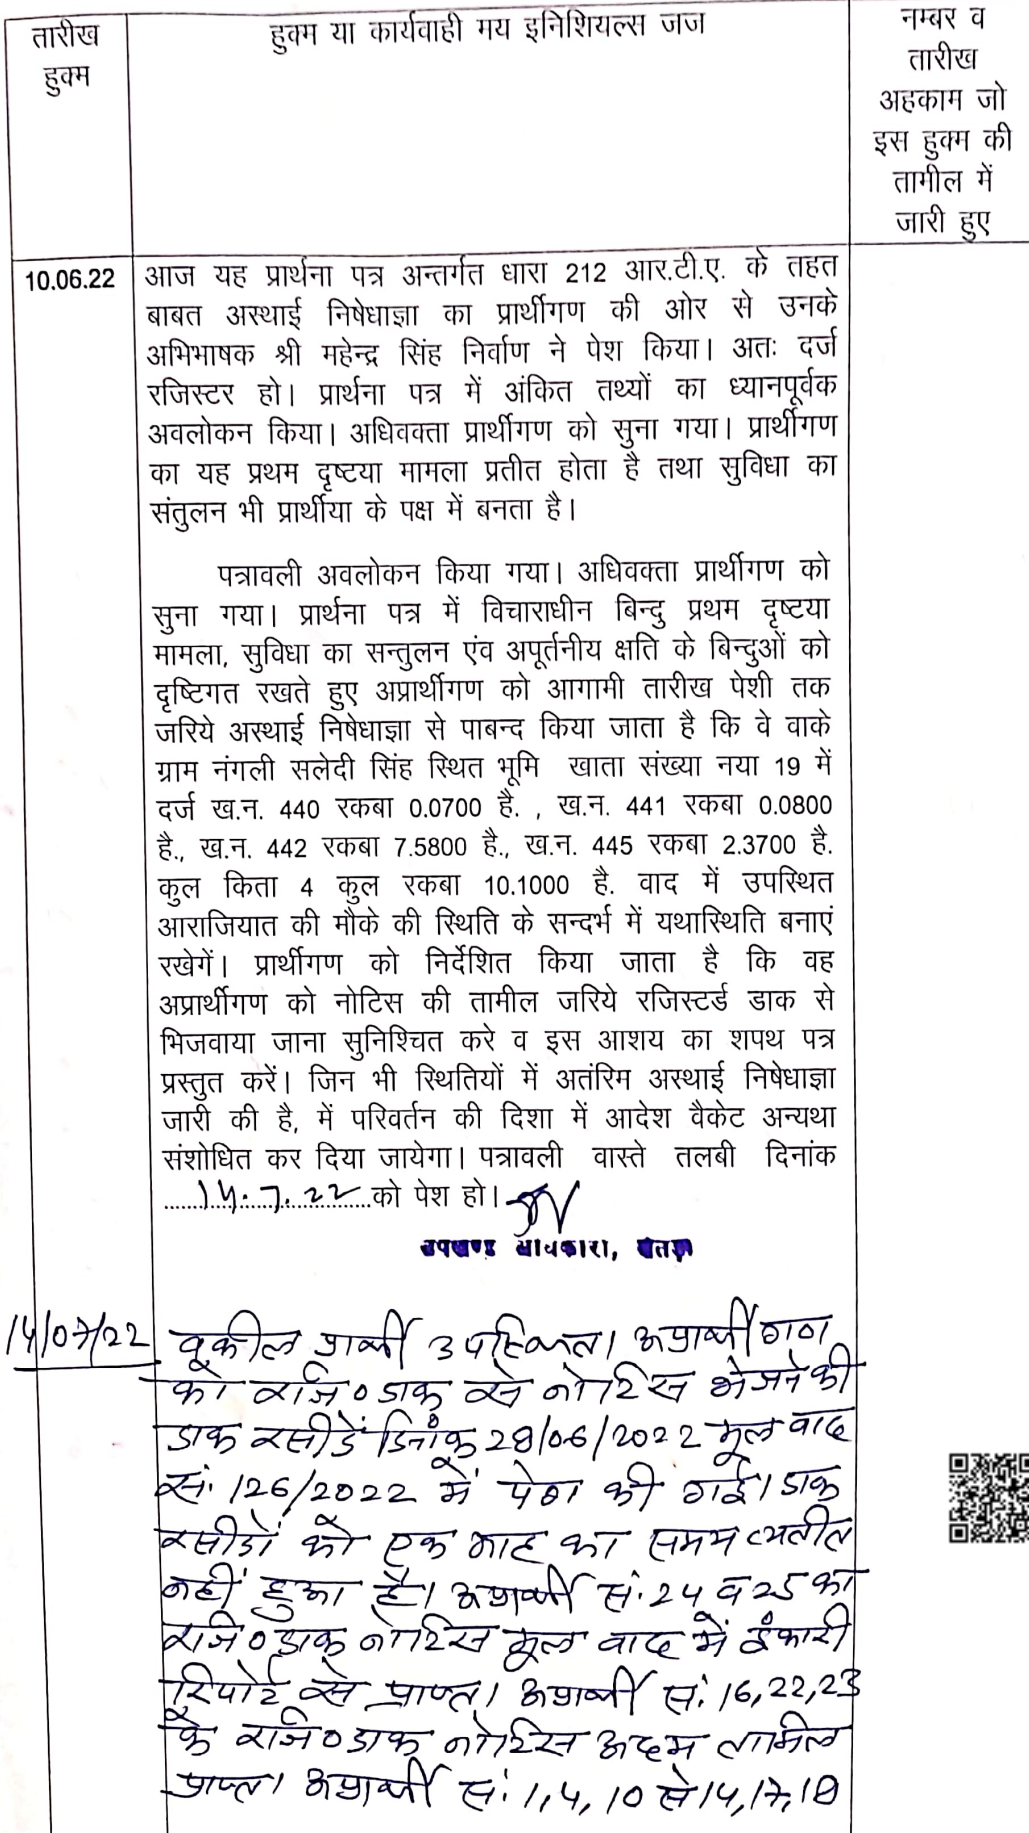 तारीख
हुक्म
हुक्म या कार्यवाही मय इनिशियल्स जज
नम्बर व
तारीख
अहकाम जो
इस हुक्म की
तामील में
जारी हुए
10.06.22
आज यह प्रार्थना पत्र अन्तर्गत धारा 212 आर.टी.ए. के तहत
बाबत अस्थाई निषेधाज्ञा का प्रार्थीगण की ओर से उनके
अभिभाषक श्री महेन्द्र सिंह निर्वाण ने पेश किया। अतः दर्ज
रजिस्टर हो। प्रार्थना पत्र में अंकित तथ्यों का ध्यानपूर्वक
अवलोकन किया। अधिवक्ता प्रार्थीगण को सुना गया। प्रार्थीगण
का यह प्रथम दृष्टया मामला प्रतीत होता है तथा सुविधा का
संतुलन भी प्रार्थीया के पक्ष में बनता है।
पत्रावली अवलोकन किया गया। अधिवक्ता प्रार्थीगण को
सुना गया। प्रार्थना पत्र में विचाराधीन बिन्दु प्रथम दृष्टया
मामला, सुविधा का सन्तुलन एंव अपूर्तनीय क्षति के बिन्दुओं को
दृष्टिगत रखते हुए अप्रार्थीगण को आगामी तारीख पेशी तक
जरिये अस्थाई निषेधाज्ञा से पाबन्द किया जाता है कि वे वाके
ग्राम नंगली सलेदी सिंह स्थित भूमि खाता संख्या नया 19 में
दर्ज ख.न. 440 रकबा 0.0700 है. , ख.न. 441 रकबा 0.0800
है., ख.न. 442 रकबा 7.5800 है., ख.न. 445 रकबा 2.3700 है.
कुल किता 4 कुल रकबा 10.1000 है. वाद में उपस्थित
आराजियात की मौके की स्थिति के सन्दर्भ में यथास्थिति बनाएं
रखेगें। प्रार्थीगण को निर्देशित किया जाता है कि वह
अप्रार्थीगण को नोटिस की तामील जरिये रजिस्टर्ड डाक से
भिजवाया जाना सुनिश्चित करे व इस आशय का शपथ पत्र
प्रस्तुत करें। जिन भी स्थितियों में अतंरिम अस्थाई निषेधाज्ञा
जारी की है, में परिवर्तन की दिशा में आदेश वैकेट अन्यथा
संशोधित कर दिया जायेगा। पत्रावली वास्ते तलबी दिनांक
14.7.22 को पेश हो।
उपखण्ड अधिकारी,
14/07/22
वकील प्रार्थी उपस्थित। अप्रार्थीगण
को रजि० डाक से नोटिस भेजने की
डाक रसीदें दिनांक 28/06/2022 मूल वाद
सं. 126/2022 में पेश की गई। डाक
रसीदों को एक माह का समय व्यतीत
नहीं हुआ है। अप्रार्थी सं. 24 व 25 का
रजि० डाक नोटिस मूल वाद में इंकारी
रिपोर्ट से प्राप्त। अप्रार्थी सं. 16,22,23
के रजि० डाक नोटिस अदम तामिल
प्राप्त। अप्रार्थी सं. 1,4,10 से 14,17,18